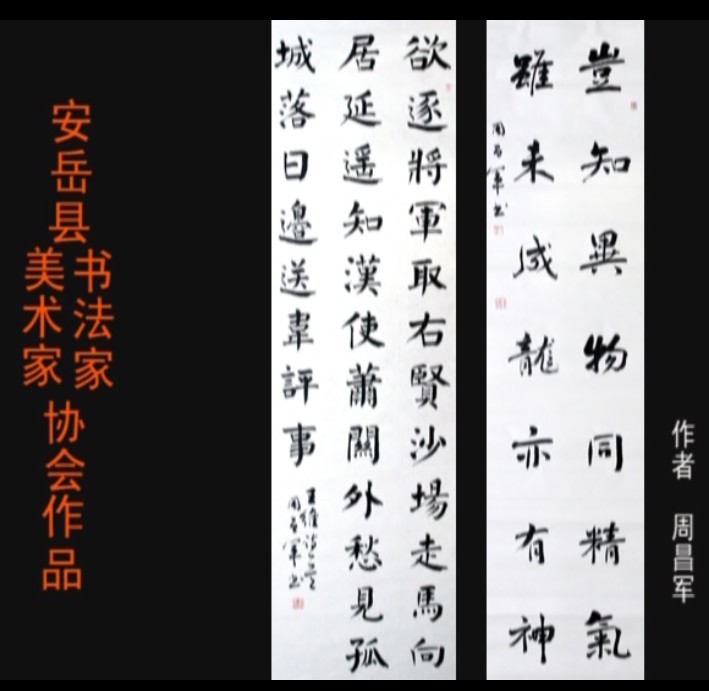 安岳县
书法家
美术家
协会作品
欲逐將軍取右賢沙場走馬向
居延遥知漢使蕭關外愁見孤
城落日邊送韋評事
王維詩一首
周昌軍书
豈知異物同精氣
雖未成龍亦有神
周昌軍书
作者 周昌军